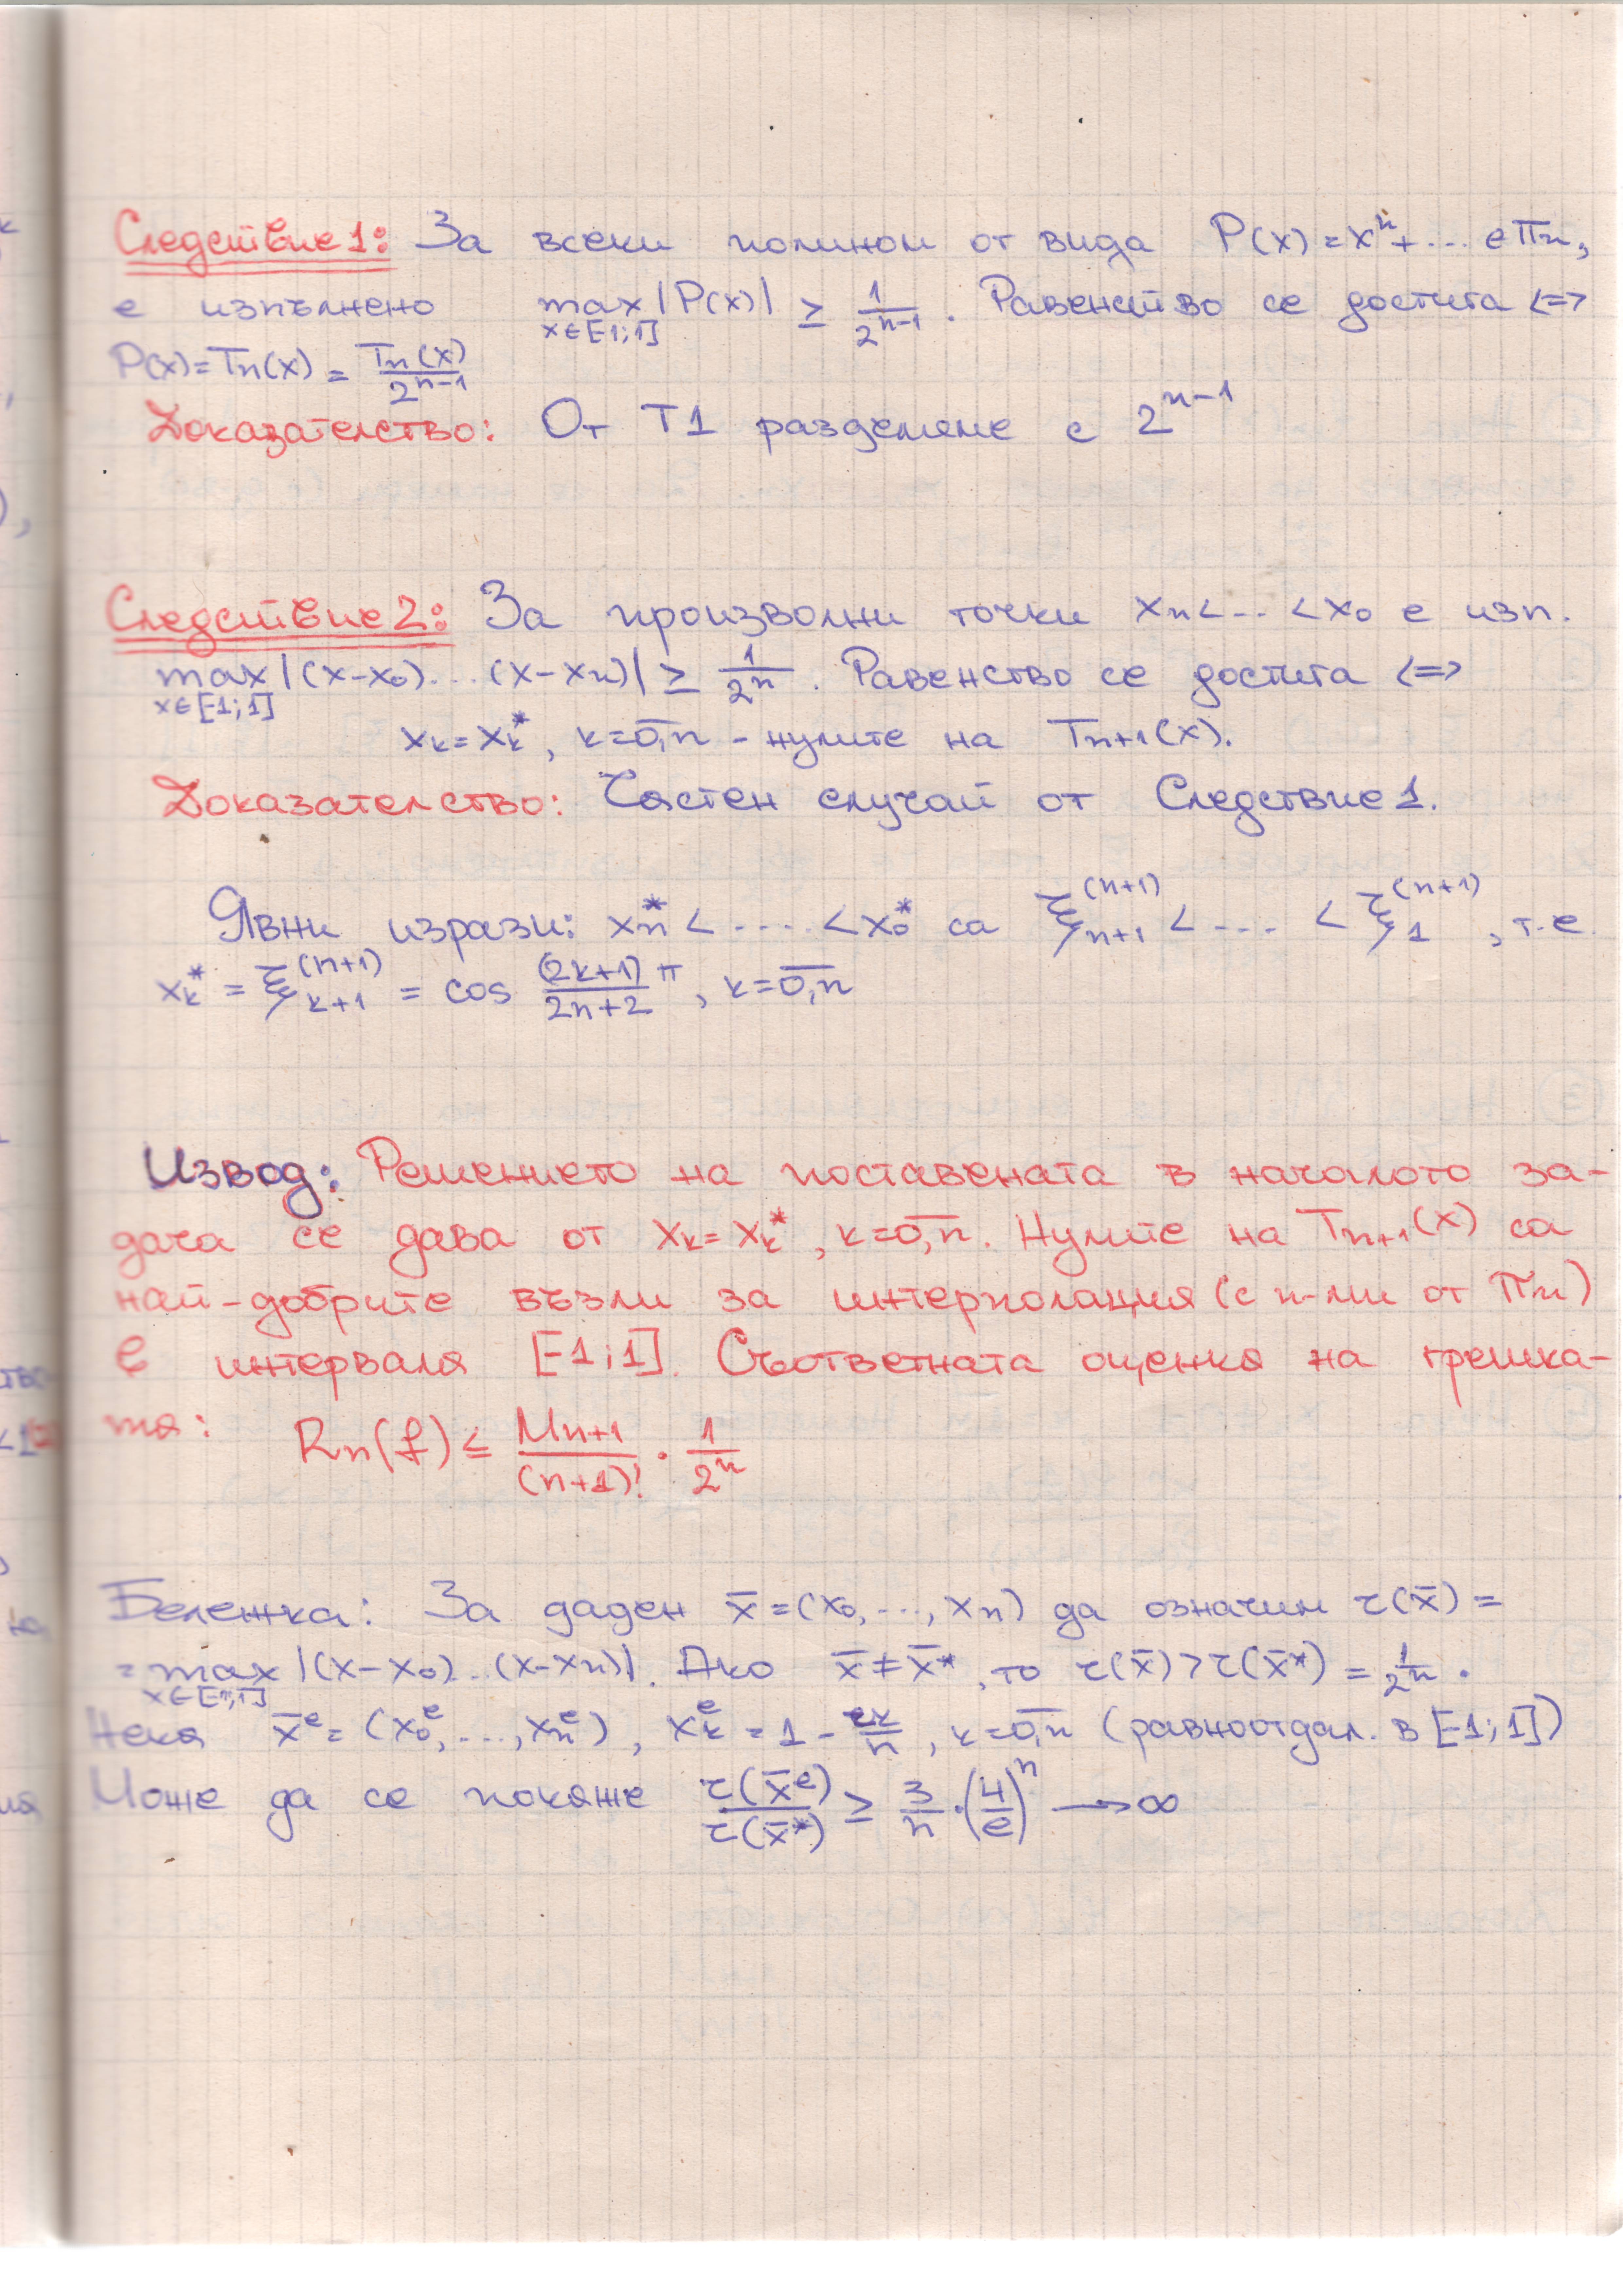 Следствие 1: За всеки полином от вида P(x) = xⁿ + ... ∈ πn,
е изпълнено max |P(x)| ≥ 1/2ⁿ⁻¹. Равенство се достига <=>
x∈[-1;1]
P(x) = Tn(x) = Tn(x)/2ⁿ⁻¹
Доказателство: От T1 разделяме с 2ⁿ⁻¹
Следствие 2: За произволни точки xn < ... < x0 е изп.
max |(x-x0)...(x-xn)| ≥ 1/2ⁿ. Равенство се достига <=>
x∈[-1;1]
xk = xk*, k=0,n - нулите на Tn+1(x).
Доказателство: Частен случай от Следствие 1.
Явни изрази: xn* < .... < x0* са ξn+1^(n+1) < ... < ξ1^(n+1), т.е.
xk* = ξk+1^(n+1) = cos (2k+1)/(2n+2) π, k=0,n
Извод: Решението на поставената в началото за-
дача се дава от xk = xk*, k=0,n. Нулите на Tn+1(x) са
най-добрите възли за интерполация (с п-ми от πn)
в интервала [-1;1]. Съответната оценка на грешка-
та: Rn(f) ≤ Mn+1/(n+1)! · 1/2ⁿ
Бележка: За даден x̄ = (x0, ..., xn) да означим τ(x̄) =
= max |(x-x0)...(x-xn)|. Ако x̄ ≠ x̄*, то τ(x̄) > τ(x̄*) = 1/2ⁿ.
x∈[-1;1]
Нека x̄ᵉ = (x0ᵉ, ..., xnᵉ), xkᵉ = 1 - 2k/n, k=0,n (равноотдал. в [-1;1])
Може да се покаже τ(x̄ᵉ)/τ(x̄*) ≥ 3/n · (4/e)ⁿ → ∞